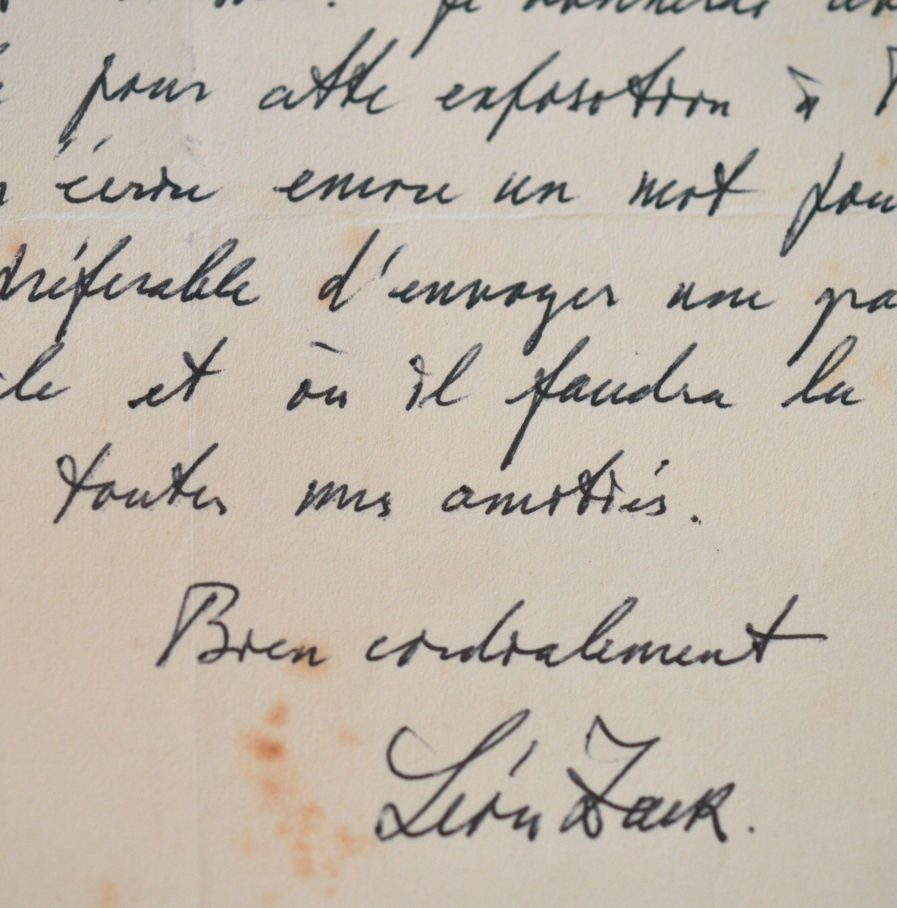 pour cette exposition à
écrire encore un mot pou
préférable d'envoyer une
et où il faudra la
toutes mes amitiés.
Bien cordialement
Léon Zack.